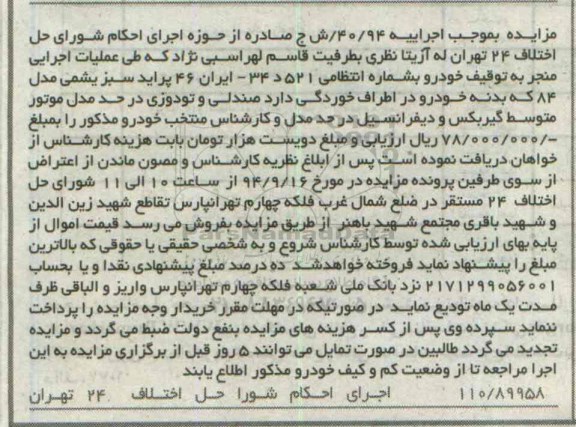 مزایده بموجب اجراییه ۴۰/۹۴/ش ج صادره از حوزه اجرای احکام شورای حل
اختلاف ۲۴ تهران له آزیتا نظری بطرفیت قاسم لهراسبی نژاد که طی عملیات اجرایی
منجر به توقیف خودرو بشماره انتظامی ۵۲۱ د ۳۴ - ایران ۴۶ پراید سبز یشمی مدل
۸۴ که بدنه خودرو در اطراف خوردگی دارد صندلی و تودوزی در حد مدل موتور
متوسط گیربکس و دیفرانسیل در حد مدل و کارشناس منتخب خودرو مذکور را بمبلغ
۷۸/۰۰۰/۰۰۰/- ریال ارزیابی و مبلغ دویست هزار تومان بابت هزینه کارشناس از
خواهان دریافت نموده است پس از ابلاغ نظریه کارشناس و مصون ماندن از اعتراض
از سوی طرفین پرونده مزایده در مورخ ۹۴/۹/۱۶ از ساعت ۱۰ الی ۱۱ شورای حل
اختلاف ۲۴ مستقر در ضلع شمال غرب فلکه چهارم تهرانپارس تقاطع شهید زین الدین
و شهید باقری مجتمع شهید باهنر از طریق مزایده بفروش می رسد قیمت اموال از
پایه بهای ارزیابی شده توسط کارشناس شروع و به شخصی حقیقی یا حقوقی که بالاترین
مبلغ را پیشنهاد نماید فروخته خواهدشد ده درصد مبلغ پیشنهادی نقدا و یا بحساب
۲۱۷۱۲۹۹۰۵۶۰۰۱ نزد بانک ملی شعبه فلکه چهارم تهرانپارس واریز و الباقی ظرف
مدت یک ماه تودیع نماید در صورتیکه در مهلت مقرر خریدار وجه مزایده را پرداخت
ننماید سپرده وی پس از کسر هزینه های مزایده بنفع دولت ضبط می گردد و مزایده
تجدید می گردد طالبین در صورت تمایل می توانند ۵ روز قبل از برگزاری مزایده به این
اجرا مراجعه تا از وضعیت کم و کیف خودرو مذکور اطلاع یابند
۱۱۰/۸۹۹۵۸ اجرای احکام شورا حل اختلاف ۲۴ تهران